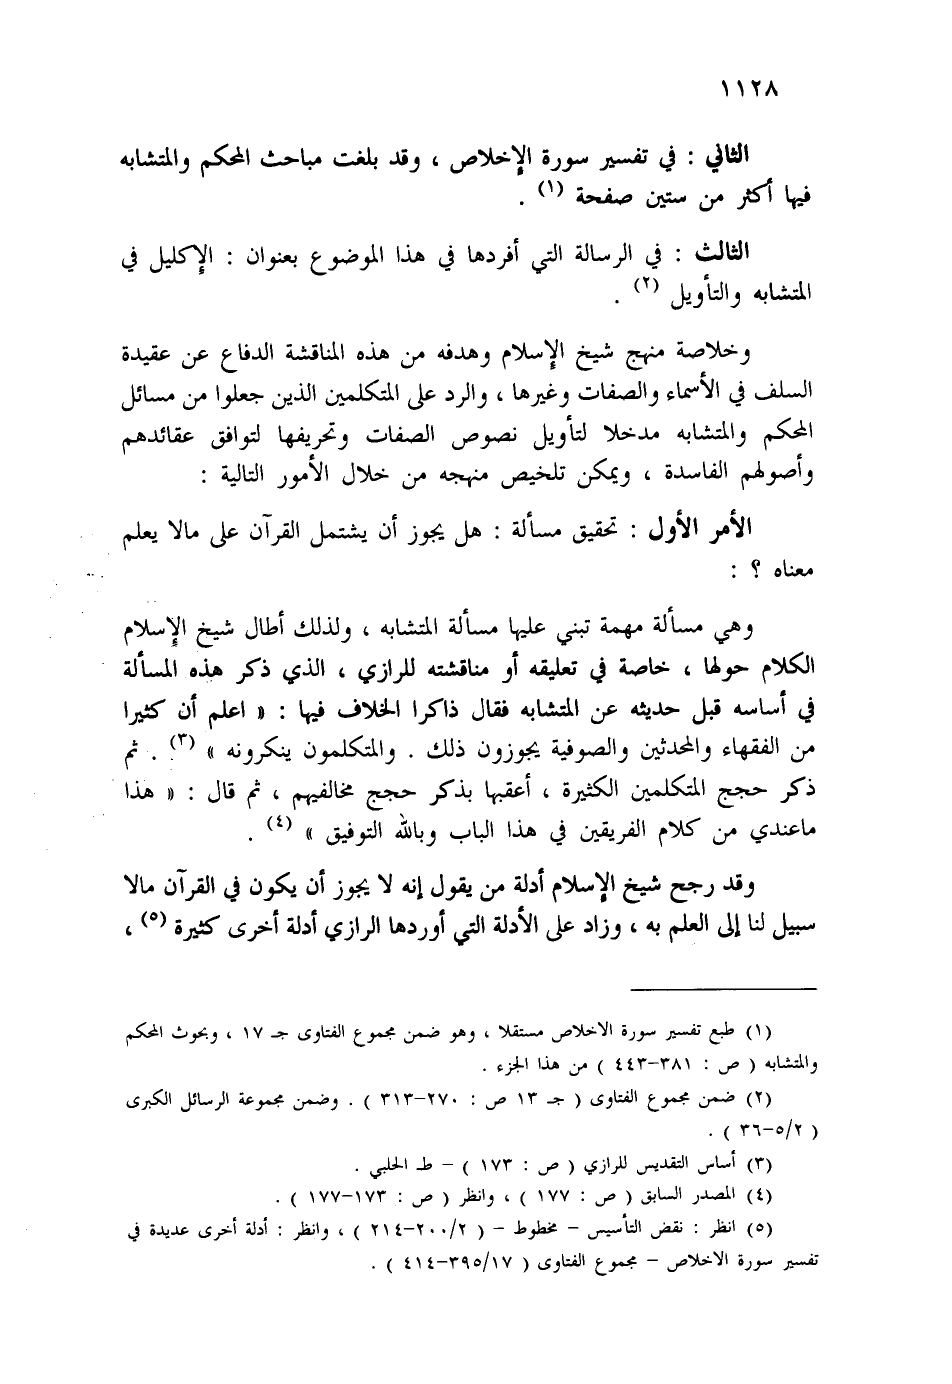 ١١٢٨
الثاني : في تفسير سورة الإخلاص ، وقد بلغت مباحث المحكم والمتشابه
فيها أكثر من ستين صفحة (١) .
الثالث : في الرسالة التي أفردها في هذا الموضوع بعنوان : الإكليل في
المتشابه والتأويل (٢) .
وخلاصة منهج شيخ الإسلام وهدفه من هذه المناقشة الدفاع عن عقيدة
السلف في الأسماء والصفات وغيرها ، والرد على المتكلمين الذين جعلوا من مسائل
المحكم والمتشابه مدخلا لتأويل نصوص الصفات وتحريفها لتوافق عقائدهم
وأصولهم الفاسدة ، ويمكن تلخيص منهجه من خلال الأمور التالية :
الأمر الأول : تحقيق مسألة : هل يجوز أن يشتمل القرآن على مالا يعلم
معناه ؟ :
وهي مسألة مهمة تبني عليها مسألة المتشابه ، ولذلك أطال شيخ الإسلام
الكلام حولها ، خاصة في تعليقه أو مناقشته للرازي ، الذي ذكر هذه المسألة
في أساسه قبل حديثه عن المتشابه فقال ذاكرا الخلاف فيها : « اعلم أن كثيرا
من الفقهاء والمحدثين والصوفية يجوزون ذلك . والمتكلمون ينكرونه » (٣) . ثم
ذكر حجج المتكلمين الكثيرة ، أعقبها بذكر حجج مخالفيهم ، ثم قال : « هذا
ماعندي من كلام الفريقين في هذا الباب وبالله التوفيق » (٤) .
وقد رجح شيخ الإسلام أدلة من يقول إنه لا يجوز أن يكون في القرآن مالا
سبيل لنا إلى العلم به ، وزاد على الأدلة التي أوردها الرازي أدلة أخرى كثيرة (٥) ،
(١) طبع تفسير سورة الاخلاص مستقلا ، وهو ضمن مجموع الفتاوى جـ ١٧ ، وبحوث المحكم
والمتشابه ( ص : ٣٨١-٤٤٣ ) من هذا الجزء .
(٢) ضمن مجموع الفتاوى ( جـ ١٣ ص : ٢٧٠-٣١٣ ) . وضمن مجموعة الرسائل الكبرى
( ٥/٢-٣٦ ) .
(٣) أساس التقديس للرازي ( ص : ١٧٣ ) – ط الحلبي .
(٤) المصدر السابق ( ص : ١٧٧ ) ، وانظر ( ص : ١٧٣-١٧٧ ) .
(٥) انظر : نقض التأسيس – مخطوط – ( ٢٠٠/٢-٢١٤ ) ، وانظر : أدلة أخرى عديدة في
تفسير سورة الاخلاص – مجموع الفتاوى ( ٣٩٥/١٧-٤١٤ ) .